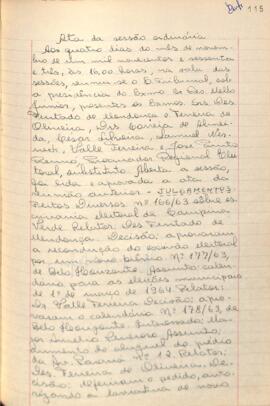 115
Ata da sessão ordinária
Aos quatro dias do mês de novem-
bro de um mil novecentos e sessenta
e três, às 16,00 horas, na sala das
sessões, reuniu-se o Tribunal, sob
a presidência do Exmo. Sr. Des. Mello
Júnior, presentes os Exmos. Srs. Des.
Furtado de Mendonça e Ferreira de
Oliveira, Drs. Correia de Almei-
da, Cesar Silveira, Samuel
Valle Ferreira e José Pinto
Renno, Procurador Regional Elei-
toral, substituto. Aberta a sessão,
foi lida e aprovada a ata da
reunião anterior. JULGAMENTOS
Feitos Diversos nº 166/63 sobre es-
crivania eleitoral de Campina
Verde. Relator: Des. Furtado de
Mendonça. Decisão: aprovaram
a recondução do escrivão eleitoral
por um novo biênio. Nº 177/63,
de Belo Horizonte. Assunto: calen-
dário para as eleições municipais
de 1º de março de 1964. Relator:
Dr. Valle Ferreira. Decisão: apro-
varam o calendário. Nº 178/63, de
Belo Horizonte. Interessado:
Assunto:
aumento do aluguel do prédio
da Av. Paraná nº 12. Relator:
Des. Ferreira de Oliveira. De-
cisão: deferiram o pedido, auto-
rizando a lavratura de novo